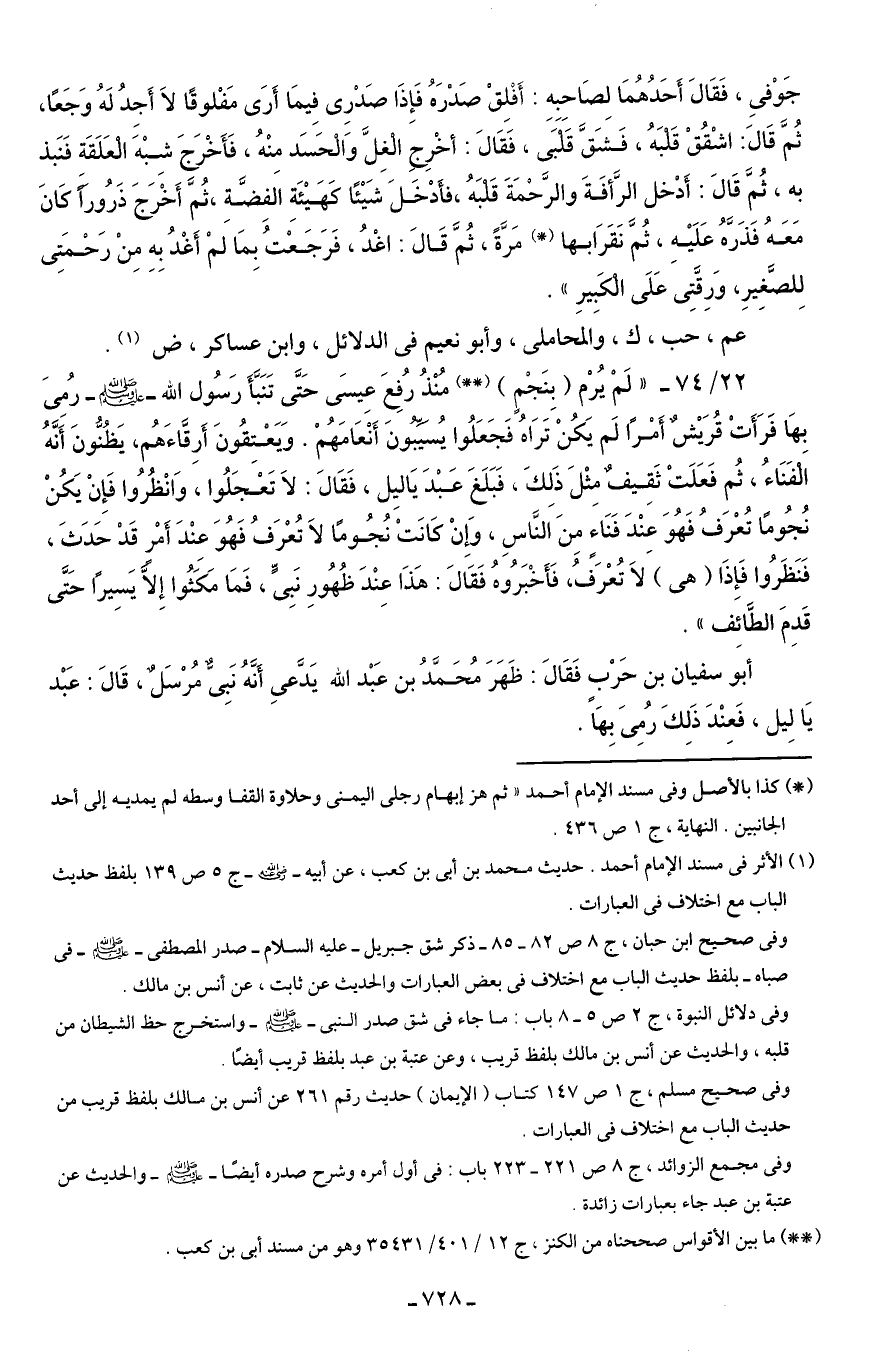 جَوْفي ، فَقَالَ أَحَدُهُمَا لِصَاحِبِهِ : أَفْلِقْ صَدْرَهُ فَإِذَا صَدْرِى فيمَا أَرَى مَفْلوقًا لاَ أَجِدُ لَهُ وَجَعًا،
ثُمَّ قَالَ: اشْقُقْ قَلْبَهُ ، فَـشَقَّ قَلْبِى ، فَقَالَ : أخْرِجِ الْغِلَّ وَالْحَسَدَ مِنْهُ ، فَأَخْرَجَ شِبْهَ الْعَلَقَةِ فَنَبَذ
به ، ثُمَّ قَالَ : أَدْخل الرَّأفَةَ والرَّحْمَةَ قَلْبَهُ ،فَأدْخَـلَ شَيْئًا كَهَيْئَةِ الفِضَّةِ ،ثُمَّ أَخْرَجَ ذَرُوراً كَانَ
مَعَـهُ فَذَرَّهُ عَلَيْـهِ ، ثُمَّ نَقَرَابـها (*) مَرَّةً ، ثُمَّ قَـالَ : اغْدُ ، فَرَجَـعْتُ بمَا لَمْ أَغْدُ بِهِ مِنْ رَحْـمَتِى
لِلصَّغِيرِ، وَرِقَّتِى عَلَى الْكَبِيرِ » .
عم ، حب ، ك ، والمحاملى ، وأبو نعيم فى الدلائل ، وابن عساكر ، ض (١) .
٧٤/٢٢ ـ « لَمْ يُرْم ( بِنَجْمٍ ) (**) مُنْذُ رُفِعَ عِيسَى حَتَّى تَنَبَّأَ رَسُول الله ـ ﷺ ـ رُمِىَ
بِهَا فَرَأَتْ قُرَيْشٌ أمْـرًا لَم يَكُنْ تَرَاهُ فَجَعَلُوا يُسَيِّبُونَ أَنْعَامَهُمْ . وَيَعْـتِقُونَ أَرِقَّاءَهُم، يَظُنُّونَ أَنَّهُ
الْفَنَاءُ ، ثُم فَعَلَتْ ثَقِيـفٌ مِثْلَ ذَلِكَ ، فَبَلَغَ عَـبْدَ يَاليل ، فَقَالَ : لاَ تَعْـجَلُوا ، وَانْظُرُوا فَإِنْ يَكُنْ
نُجُومًا تُعْرَفُ فَهُوَ عِنْدَ فَنَاءٍ مِنَ النَّاسِ ، وَإِنْ كَانَتْ نُجُـومًا لاَ تُعْرَفُ فَهُوَ عِنْدَ أَمْرٍ قَدْ حَدَثَ ،
فَنَظَرُوا فَإِذَا ( هى ) لاَ تُعْرَفُ، فَأَخْبَرُوهُ فَقَالَ : هَذَا عِنْدَ ظُهُورِ نَبِىٍّ ، فَمَا مَكَثُوا إِلاَّ يَسِيرًا حَتَّى
قَدِمَ الطَّائِف » .
أبو سفيان بن حَرْبٍ فَقَالَ : ظَهَرَ مُحَـمَّدُ بن عَبْد الله يَدَّعى أَنَّهُ نَبِىٌّ مُرْسَلٌ ، قَالَ : عَبْد
يَا لِيل ، فَعِنْدَ ذَلِكَ رُمِىَ بِهَا .
(*) كذا بالأصـل وفى مسند الإمام أحـمد « ثم هز إبهام رجلى اليمنى وحلاوة القفـا وسطه لم يمديـه إلى أحد
الجانبين . النهاية ، ج ١ ص ٤٣٦ .
(١) الأثر فى مسند الإمام أحمد . حديث محمد بن أبى بن كعب ، عن أبيه ـ رضي الله عنه ـ ج ٥ ص ١٣٩ بلفظ حديث
الباب مع اختلاف فى العبارات .
وفى صحـيح ابن حبان ، ج ٨ ص ٨٢ ـ ٨٥ ـ ذكر شق جـبريل ـ عليه السـلام ـ صدر المصطفى ـ ﷺ ـ فى
صباه ـ بلفظ حديث الباب مع اختلاف فى بعض العبارات والحديث عن ثابت ، عن أنس بن مالك .
وفى دلائل النبوة ، ج ٢ ص ٥ ـ ٨ باب : مـا جاء فى شق صدر الـنبى ـ ﷺ ـ واستخـرج حظ الشيطان من
قلبه ، والحديث عن أنس بن مالك بلفظ قريب ، وعن عتبة بن عبد بلفظ قريب أيضًا .
وفى صحـيح مسلم ، ج ١ ص ١٤٧ كتـاب ( الإيمان ) حديث رقم ٢٦١ عن أنس بن مـالك بلفظ قريب من
حديث الباب مع اختلاف فى العبارات .
وفى مجـمع الزوائد ، ج ٨ ص ٢٢١ ـ ٢٢٣ باب : فى أول أمره وشرح صدره أيضًـا ـ ﷺ ـ والحديث عن
عتبة بن عبد جاء بعبارات زائدة .
(**) ما بين الأقواس صححناه من الكنز ، ج ١٢ / ٤٠١/ ٣٥٤٣١ وهو من مسند أبى بن كعب .
ـ ٧٢٨ ـ